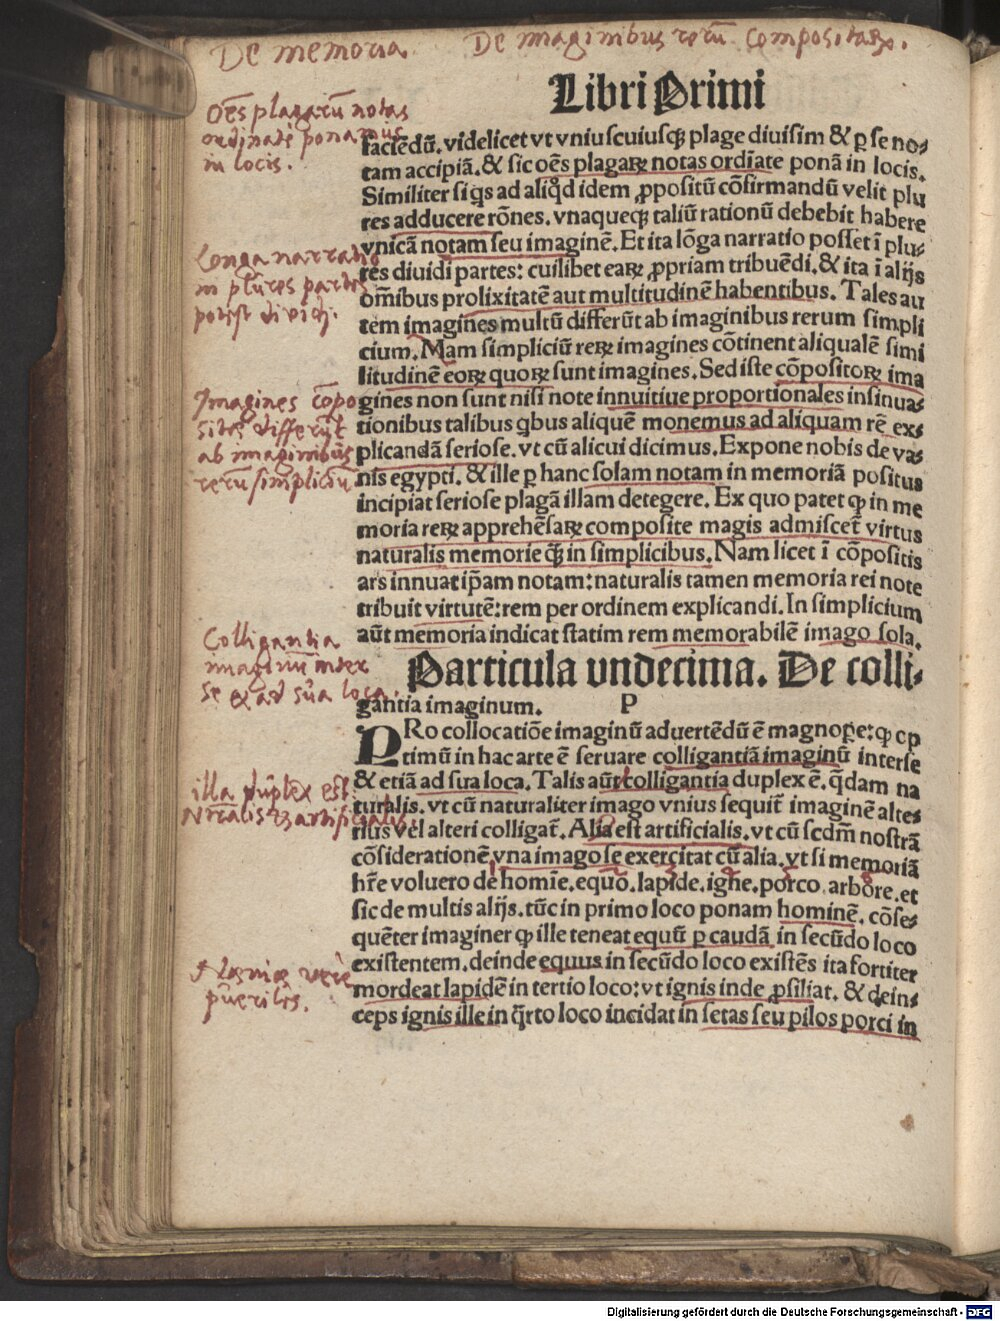 De memoria. De imaginibus rerū compositaꝝ.
Libri Primi
Oēs plagarū notas
ordinatē ponamus
in locis.
faciēdū. videlicet vt vniuscuiusqꝫ plage diuisim & ꝑ se no⸗
tam accipiā. & sic oēs plagaꝝ notas ordiāte ponā in locis.
Similiter si q̇s ad aliq̇d idem ꝓpositū cōfirmandū velit plu
res adducere rōnes. vnaqueqꝫ taliū rationū debebit habere
vnicā notam seu imaginē. Et ita lōga narratio posset ī plu⸗
res diuidi partes: cuilibet eaꝝ ꝓpriam tribuēdi. & ita ī alijs
om̄ibus prolixitatē aut multitudinē habentibus. Tales au
tem imagines multū differūt ab imaginibus rerum simpli
cium. Nam simpliciū reꝝ imagines cōtinent aliqualē simi
litudinē eoꝝ quoꝝ sunt imagines. Sed iste cōpositoꝝ ima
gines non sunt nisi note innuitiue proportionales insinua⸗
tionibus talibus q̇bus aliquē monemus ad aliquam rē ex⸗
plicandā seriose. vt cū alicui dicimus. Expone nobis de va⸗
nis egypti. & ille ꝑ hanc solam notam in memoriā positus
incipiat seriose plagā illam detegere. Ex quo patet ꝙ in me
moria reꝝ apprehēsaꝝ composite magis admiscet̄ virtus
naturalis memorie q̄ꝫ in simplicibus. Nam licet ī cōpositis
ars innuat ip̄am notam: naturalis tamen memoria rei note
tribuit virtutē: rem per ordinem explicandi. In simplicium
aūt memoria indicat statim rem memorabilē imago sola.
Longa narratio
in plures partes
potest dividi.
Imagines cōpo
sitas differūt
ab imaginibus
rerū simpliciū
Particula vndecima. De colli⸗
gantia imaginum. P
Colligantia
imaginū inter
se & ad sua loca.
PRo collocatiōe imaginū aduertēdū ē magnoꝑe: ꝙ op
timū in hac arte ē seruare colligantiā imaginū interse
& etiā ad sua loca. Talis aūt colligantia duplex ē. q̄dam na
turalis. vt cū naturaliter imago vnius sequit̄ imaginē alte⸗
rius vel alteri colligat̄. Alia est artificialis. vt cū scdm̄ nostrā
cōsiderationē vna imago se exercitat cū alia. vt si memoriā
hr̄e voluero de homīe. equo. lapide. igne. porco. arbore. et
sic de multis alijs. tūc in primo loco ponam hominē. cōse⸗
quēter imaginer ꝙ ille teneat equū ꝑ caudā in secūdo loco
existentem. deinde equus in secūdo loco existēs ita fortiter
mordeat lapidē in tertio loco: vt ignis inde ꝓsiliat. & dein⸗
ceps ignis ille in q̄rto loco incidat in setas seu pilos porci in
illa duplex est
Nr̄alis & artificialis.
puerilis.
Digitalisierung gefördert durch die Deutsche Forschungsgemeinschaft - DFG